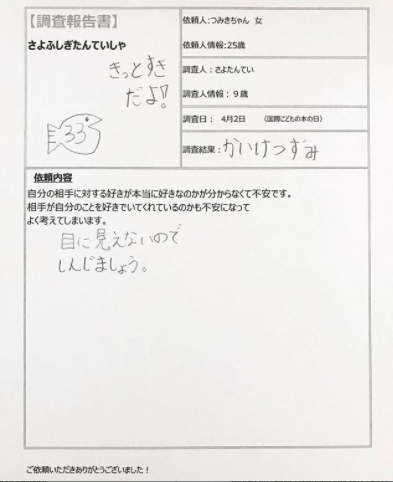 【調査報告書】
さよふしぎたんていしゃ
きっとすき
だよ!!
33
依頼人:つみきちゃん 女
依頼人情報:25歳
調査人：さよたんてい
調査人情報：９歳
調査日： 4月2日 （国際こどもの本の日）
調査結果：かいけつずみ
依頼内容
自分の相手に対する好きが本当に好きなのかが分からなくて不安です。
相手が自分のことを好きでいてくれているのかも不安になって
よく考えてしまいます。
目に見えないので
しんじましょう。
ご依頼いただきありがとうございました！